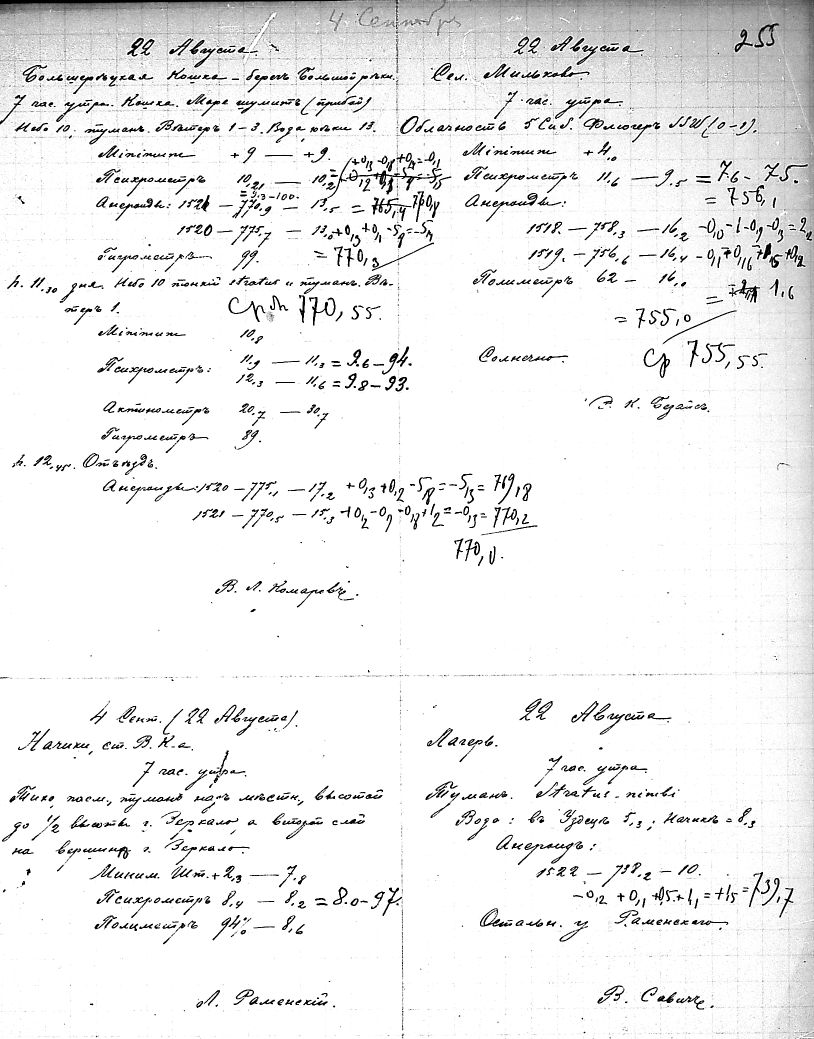 4 Сентября
255
22 Августа
Большерѣцкая Кошка – берегъ Большой рѣки.
7 час. утра. Кошка. Море шумитъ (прибой)
Небо 10, туманъ. Вѣтеръ 1-3. Вода рѣки 13.
Minimum +9 — +9.
Психрометръ 10,21 — 10,2
= 9,3-100.
Анероиды: 1521 — 770,9 — 13,5 = 765,4 770,8
1520 — 775,7 — 13,0 +0,3 +0,1 -5,9 = -5,4
Гигрометръ 99. = 770,3
h. 11,30 дня. Небо 10 тонкій stratus и туманъ. Вѣ-
теръ 1. Ср 770,55.
Minimum 10,8
Психрометръ: 11,9 — 11,3 = 9.6 – 94.
12,3 — 11,6 = 9.8 – 93.
Актинометръ 20,7 — 30,7
Гигрометръ 89.
h. 12,45. Отъѣздъ.
Анероиды: 1520 — 775,1 — 17,2 +0,3 +0,2 -5,8 = -5,3 = 769,8
1521 — 770,5 — 15,3 +0,2 -0,9 -0,8 +1,2 = -0,3 = 770,2
770,0.
В. Л. Комаровъ.
22 Августа
Сел. Мильково
7 час. утра
Облачность 5 Cub. Флюгеръ SSW (0-1).
Minimum +4,0
Психрометръ 11,6 — 9,5 = 7.6 - 75.
Анероиды: = 756,1
1518 — 758,3 — 16,2 -0,0 -1 -0,9 -0,3 = 2,2
1519 — 756,6 — 16,4 -0,1 +0,16
Полиметръ 62 — 16,0 = 1,6
= 755,0
Солнечно. Ср 755,55.
4 Сент. (22 Августа).
Начики, ст. В. К-а.
7 час. утра.
Тихо, пасм., туманъ надъ мѣстн., высотой
до 1/2 высоты г. Зеркало, а второй слой
на вершинѣ г. Зеркало.
Миним. Шт. +2,3 — 7,8
Психрометръ 8,4 — 8,2 = 8.0-97.
Полиметръ 94% — 8,6
Л. Раменскій.
22 Августа
Лагерь.
7 час. утра
Туманъ. Stratus-nimbi
Вода: въ 5,3; Начикѣ = 8,3
Анероидъ:
1522 — 738,2 — 10.
-0,2 +0,1 +0,5 +1,1 = +1,5 = 739,7
Остальн. у Раменскаго.
В. Савичъ.